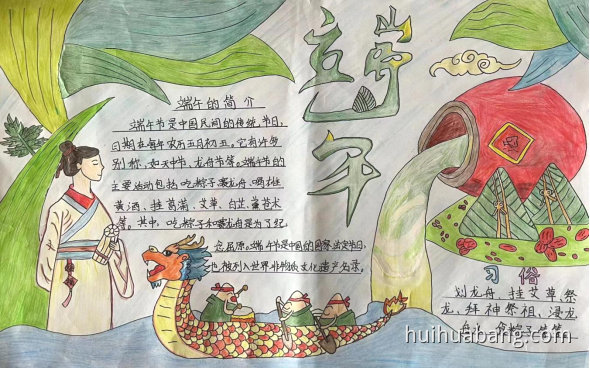 端午
端午的简介
端午节是中国民间的传统节日,
日期在每年农历五月初五。它有许多
别称,如天中节、龙舟节等。端午节的
主要活动包括吃粽子赛龙舟、喝雄
黄酒、挂菖蒲、艾草、白芷、薰苍术
等。其中,吃粽子和赛龙舟是为了纪
念屈原。端午节是中国的国家法定节日,
也被列入世界非物质文化遗产名录。
习俗
划龙舟、挂艾草祭
龙、拜神祭祖、浸龙
舟水、食粽子等等
huihuabang.com